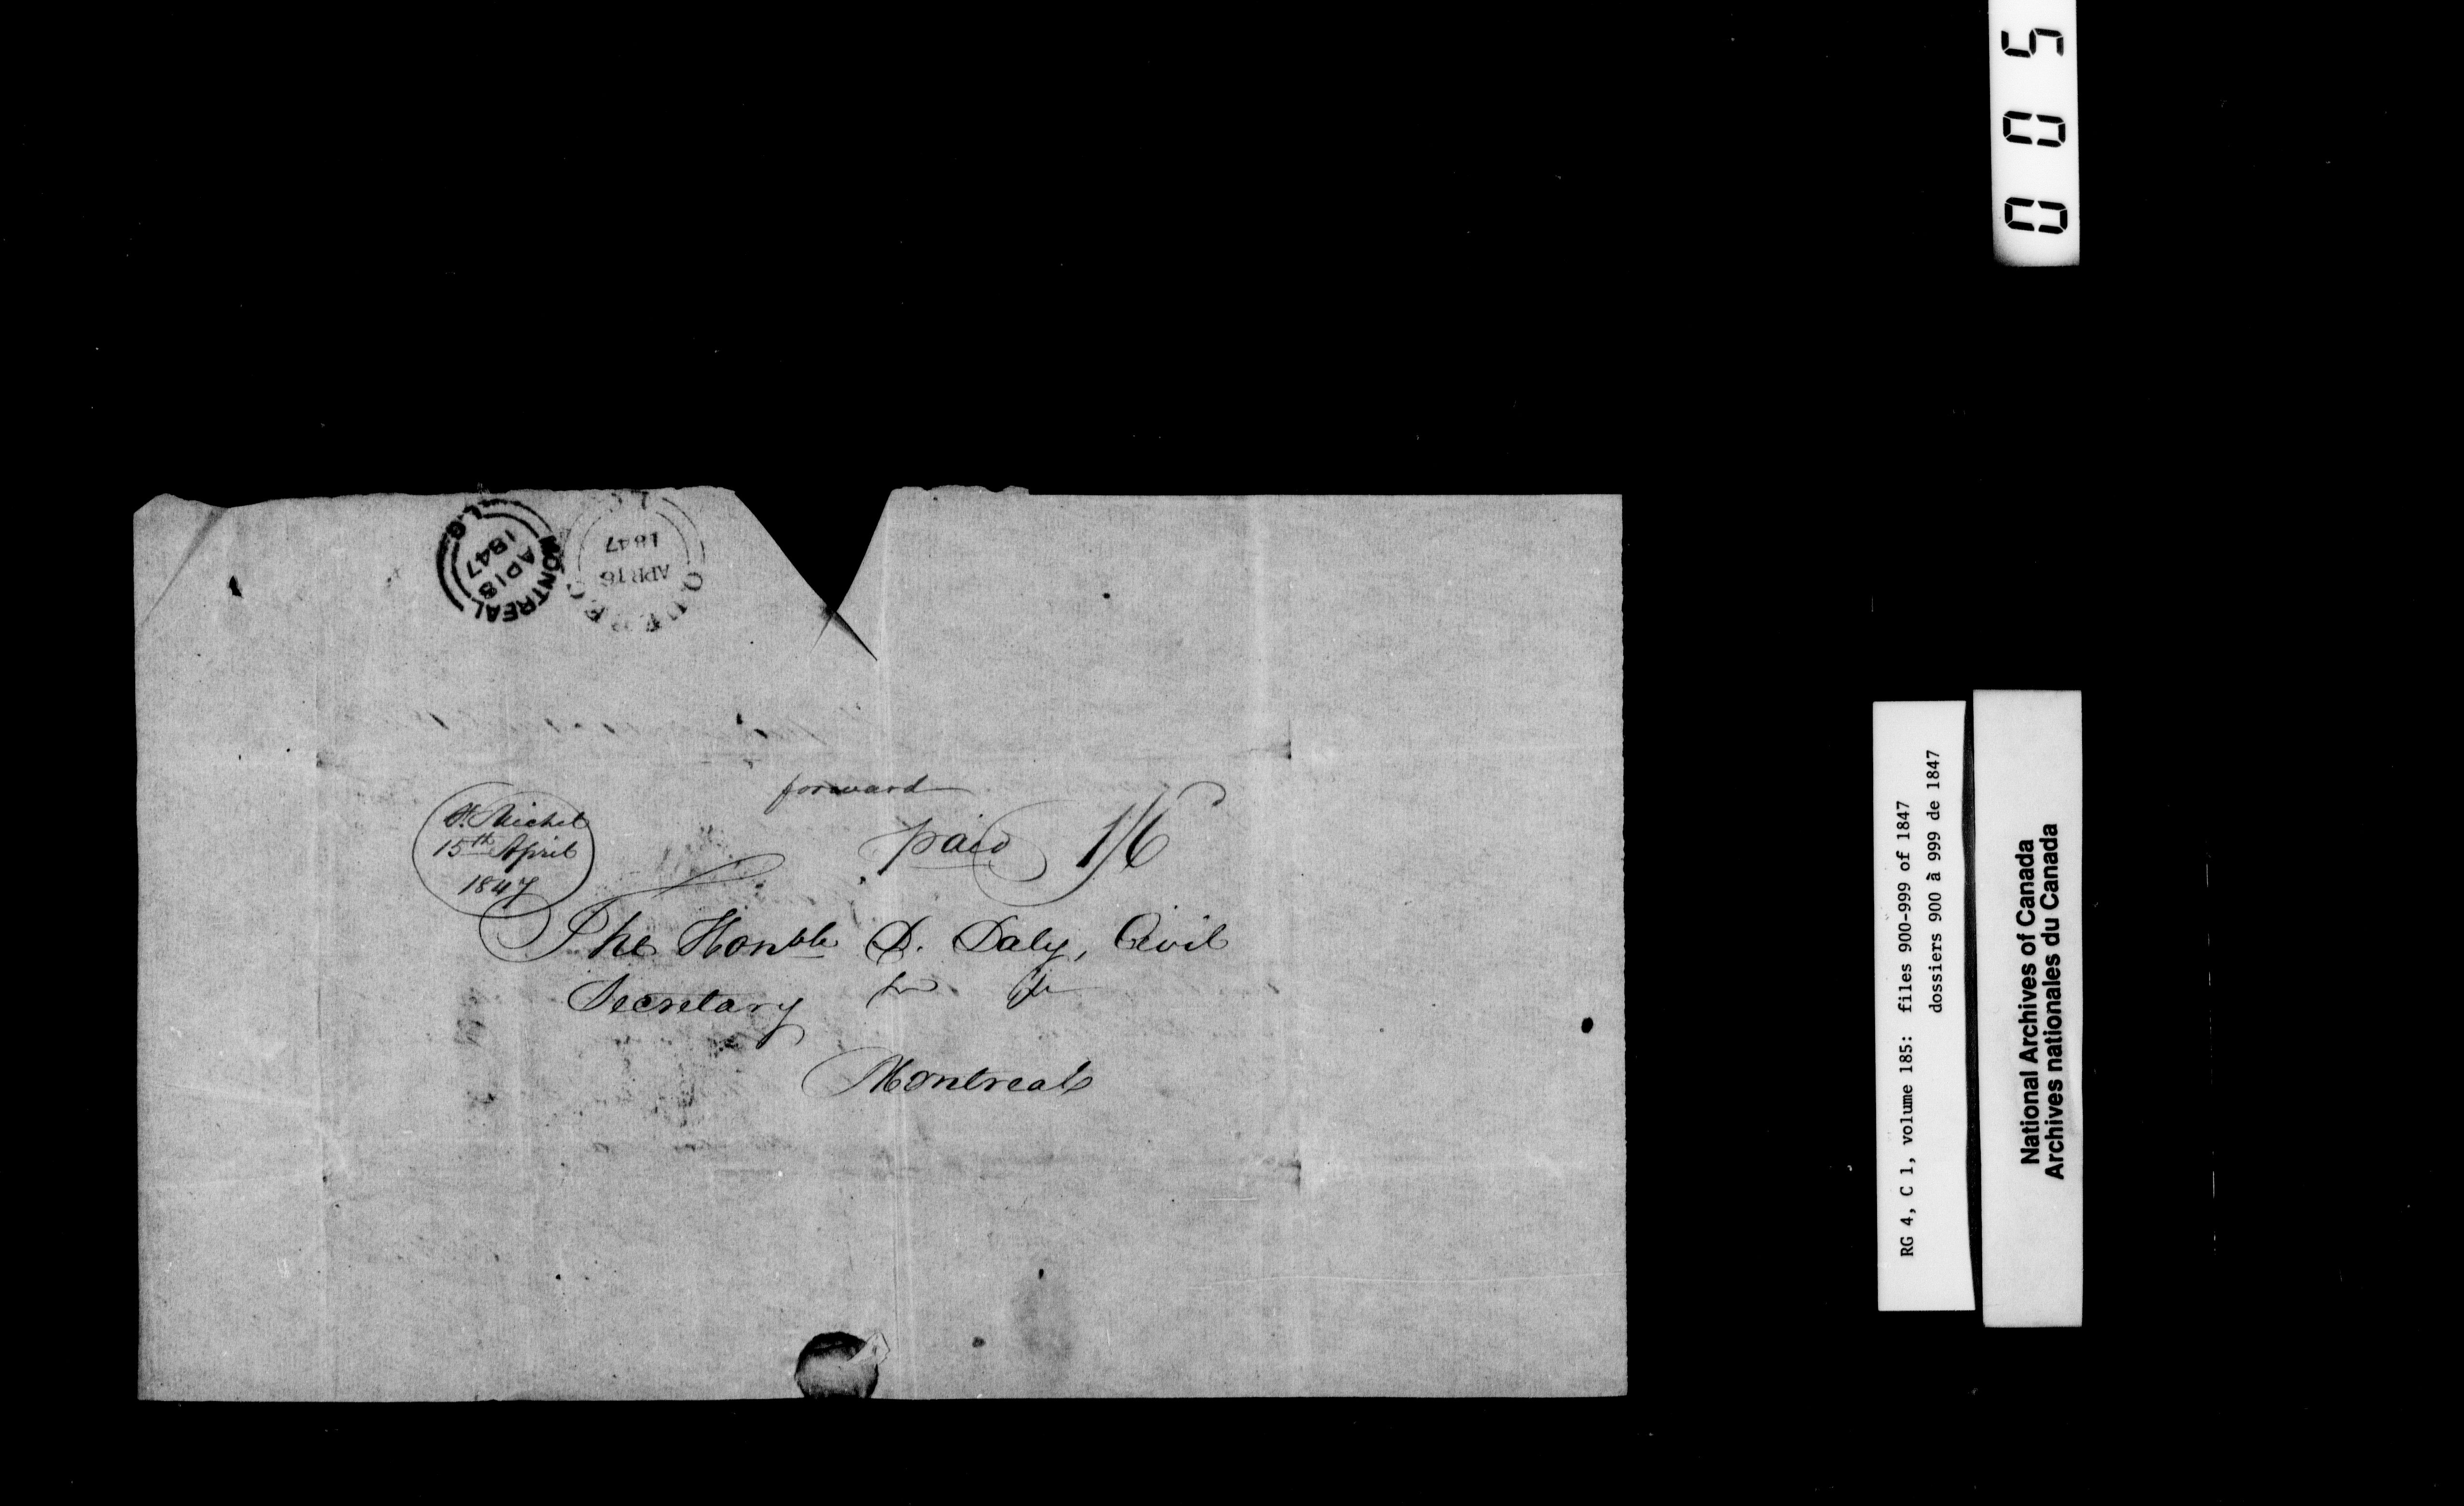 MONTREAL
AP 18
1847
L.C.
QUEBEC
APR 16
1847
forward
St. Michel
15th April
1847
paid 1/6
The Honble D. Daly, Civil
Secretary &c &c
Montreal
005
RG 4, C 1, volume 185: files 900-999 of 1847
dossiers 900 à 999 de 1847
National Archives of Canada
Archives nationales du Canada